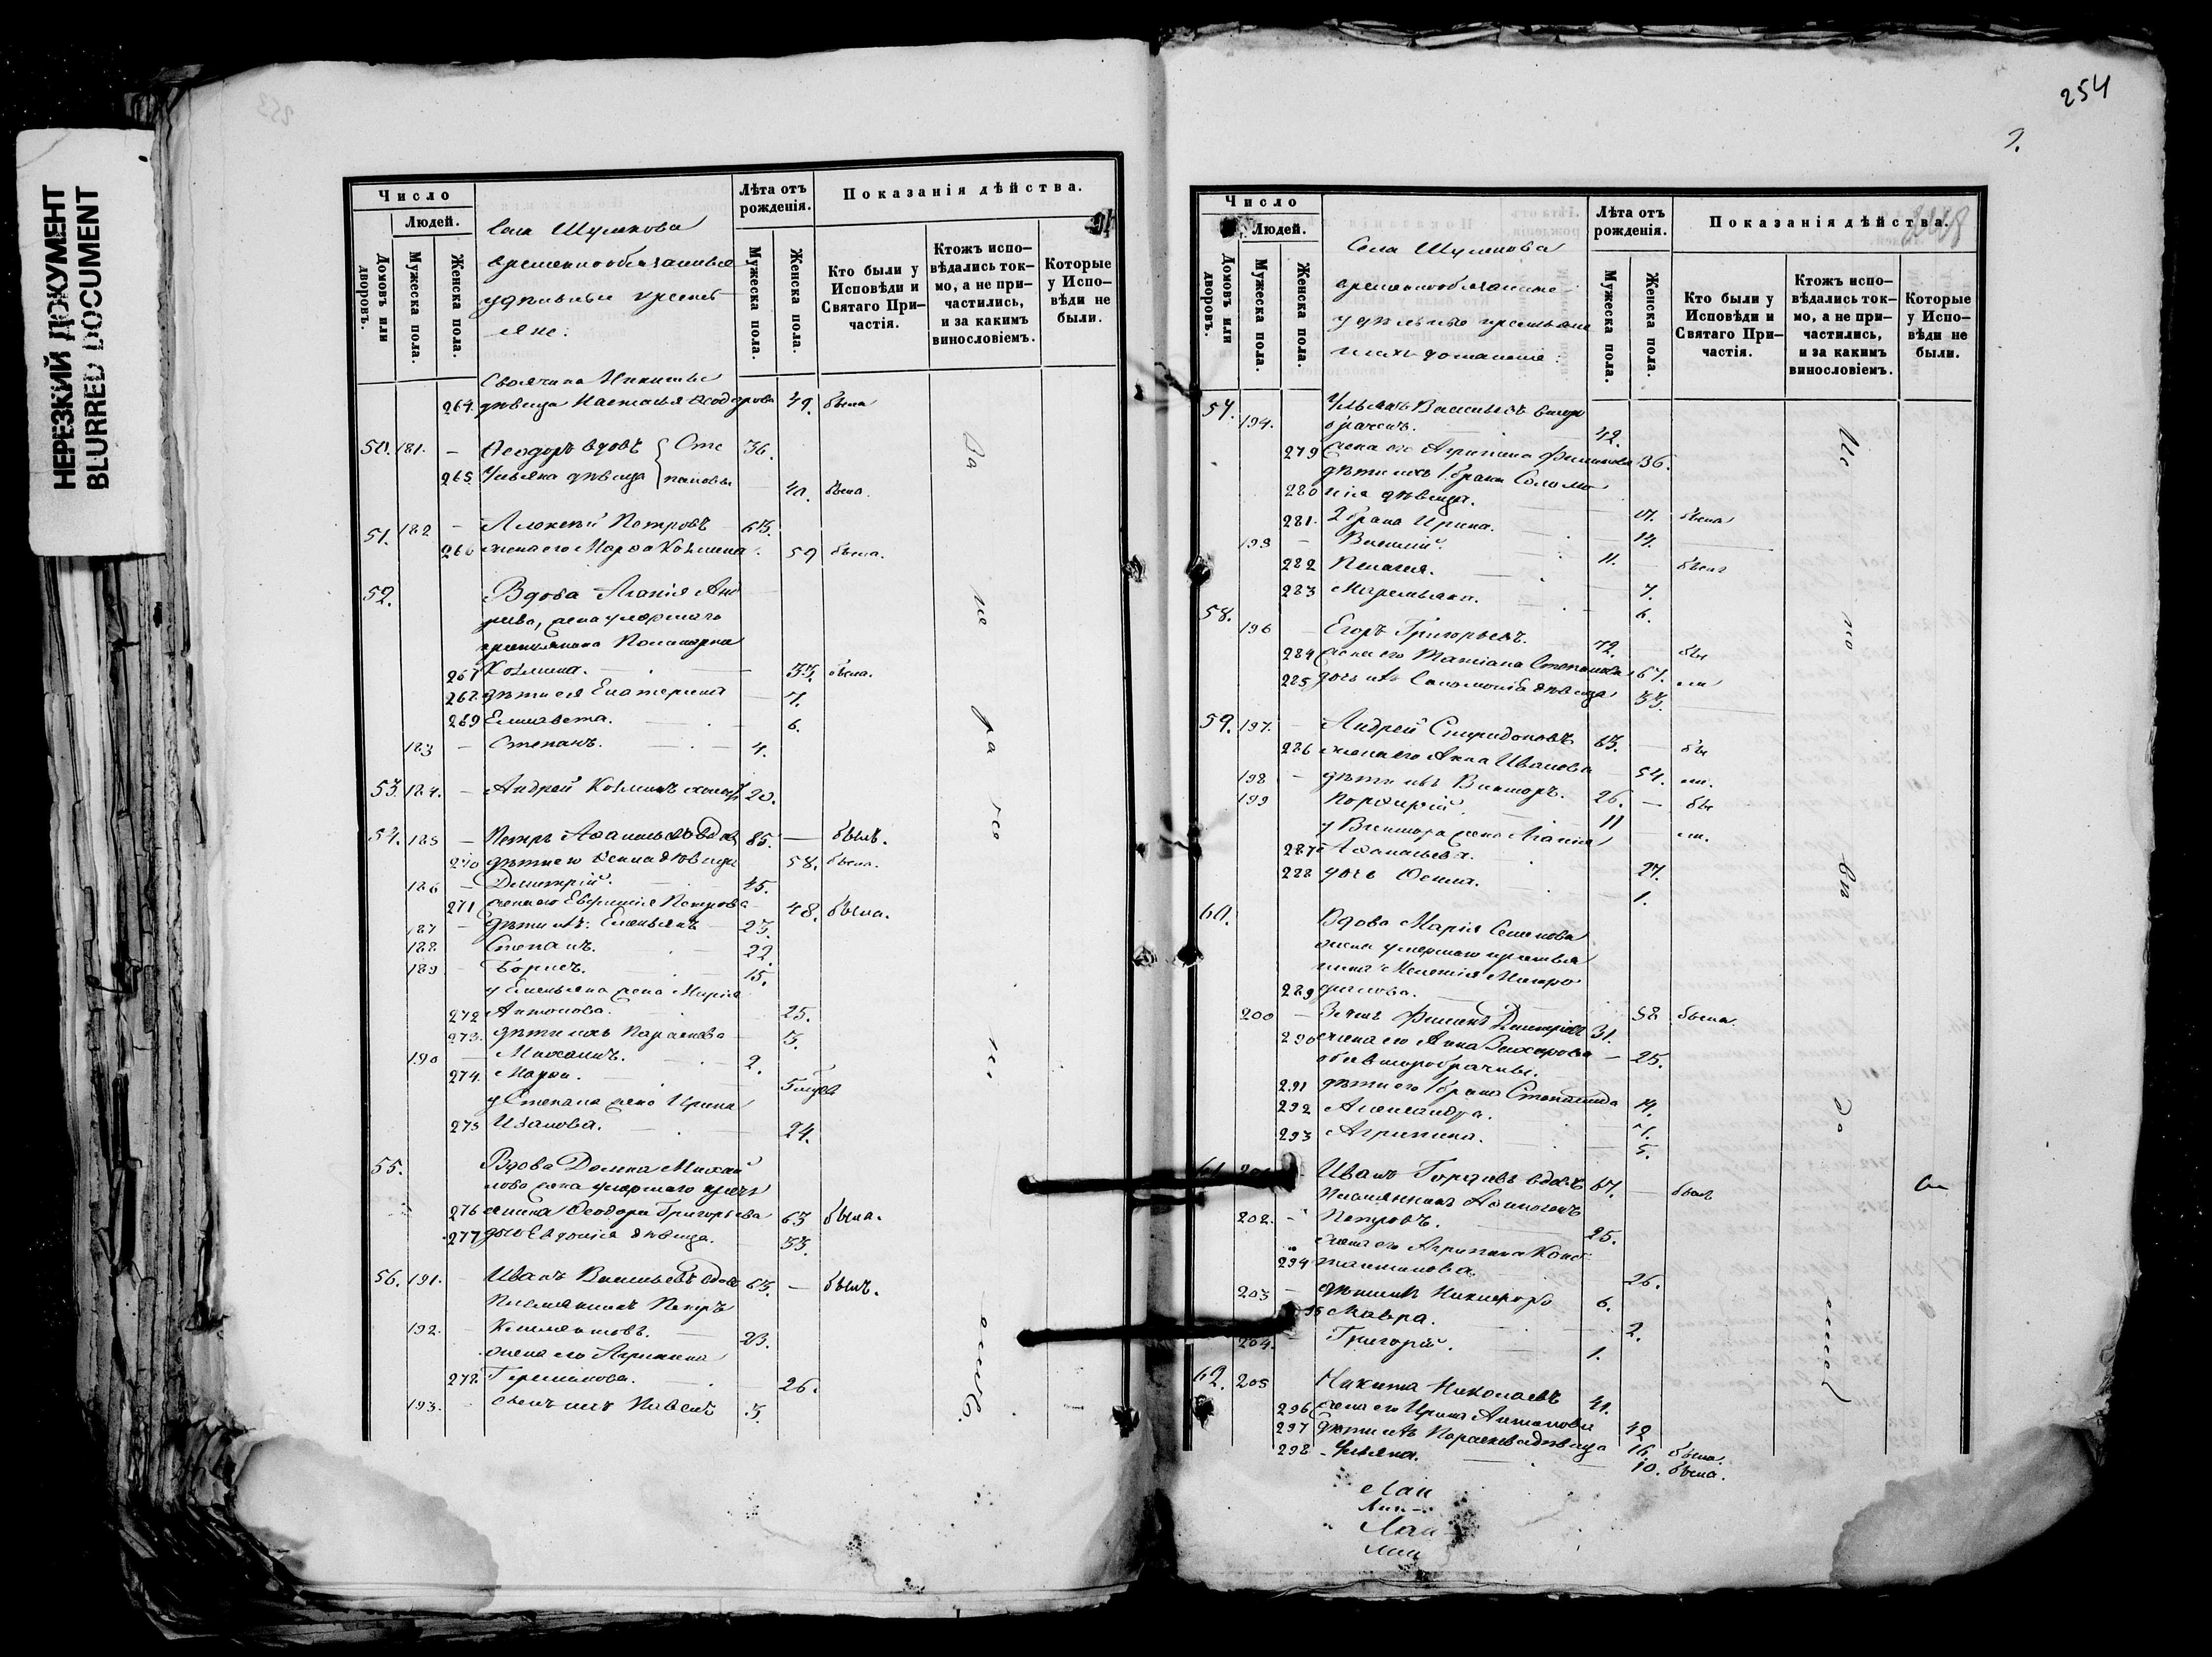 НЕРЕЗКИЙ ДОКУМЕНТ
BLURRED DOCUMENT
Число
Людей.
Домовъ или дворовъ.
Мужеска пола.
Женска пола.
Села Шуланова
временнообязанные
удельные кресть
яне.
Лѣта отъ рожденія.
Мужеска пола.
Женска пола.
Показанія дѣйства.
Кто были у Исповѣди и Святаго При–частія.
Ктожъ испо–вѣдались ток–мо, а не при–частились, и за какимъ винословіемъ.
Которые у Испо–вѣди не были.
Своячина Никиты
264. дѣвица Настасья Ѳеодорова 49. была
50. 181. – Ѳеодоръ вдовъ 36.
265. Ульяна дѣвица 40. была.
51. 182 – Алексѣй Петровъ 63.
266 жена его Марѳа Козмина. 59 была.
52. Вдова Агафія Анд
реева, жена умершаго
крестьянина
267 Козмина. 33. была.
268 дѣти ея Екатерина 7.
269 Елизавета. 6.
183 – Степанъ. 4.
53. 184. – Андрей Козминъ холост 20.
54. 185 – Петръ Аѳанасьевъ вдов 85. – былъ.
270 дѣти его Ѳекла дѣвица 58. была.
186 – Димитрій. 45.
271 жена его Евфимія Петрова 48. была.
187 – дѣти ихъ: Емельянъ 23.
188 Степанъ. 22.
189 – Борисъ. 15.
у Емельяна жена Марія
272 Антонова. 25.
273. дѣти ихъ Параскева 3.
190 – Михаилъ. 2.
274. Марѳа.
у Степана жена Ирина
275 Иванова. 24.
55. Вдова Домна Михай
лова жена умершаго крест
276 янина Ѳеодора Григорьева 63 была.
277 дочь Евдокія дѣвица. 33.
56. 191. Иванъ Васильевъ вдов 63. – былъ.
Племянникъ Петръ
192. Климентовъ. 23.
жена его Агрипина
278 Герасимова. 26.
193. сынъ ихъ Павелъ 3.
За не ра че ні емъ.
254
Число
Людей.
Домовъ или дворовъ.
Мужеска пола.
Женска пола.
Села Шуланова
временнообязанные
удѣльные крестьяне
Лѣта отъ рожденія.
Мужеска пола.
Женска пола.
Показанія дѣйства.
Кто были у Исповѣди и Святаго При–частія.
Ктожъ испо–вѣдались ток–мо, а не при–частились, и за какимъ винословіемъ.
Которые у Испо–вѣди не были.
57. Ульянъ Васильевъ втор
194. браченъ. 42.
279 жена его Агрипина Филипова 36.
дѣти ихъ 1 брака Соломо
280 нія дѣвица. 17. была
281. 2 брака Ирина. 14.
195 – Василій. 11.
282 Пелагея. 7.
283 Маремьяна. 6.
58. 196 Егоръ Григорьевъ. 72.
284 жена его Татіана Степанова 67.
285 дочь ихъ Соломонія дѣвица 33.
59. 197. Андрей Спиридоновъ 63.
286 жена его Анна Иванова 54.
198 – дѣти ихъ Викторъ. 26.
199 Порфирій. 11
у Виктора жена Агафія
287 Аѳанасьева. 27.
288 дочь Ѳекла. 1.
60. Вдова Марія Семенова
жена умершаго крестья
нина Мелетія Митро
289 фанова. 58 была.
200 – Зять Филипъ Димитріевъ 31.
290 жена его Анна Захарова 25.
оба второбрачны.
291 дѣти его 1 брака Степанида 14.
292 Александра. 7.
293 Агрипина. 5.
61. 201 Иванъ Борисовъ вдовъ 67. былъ
Племянникъ Аѳиногенъ
202. – Петровъ. 25.
жена его Агрипина Конс
294 тантинова. 26.
203 – Никифоръ 6.
295 Мавра. 2.
204. Григорій. 1.
62. 205 Никита Николаевъ 41.
296 жена его Ирина Антонова 42
297 дѣти ихъ Параскева дѣвица 16. была.
298 Ульяна. 10. была.